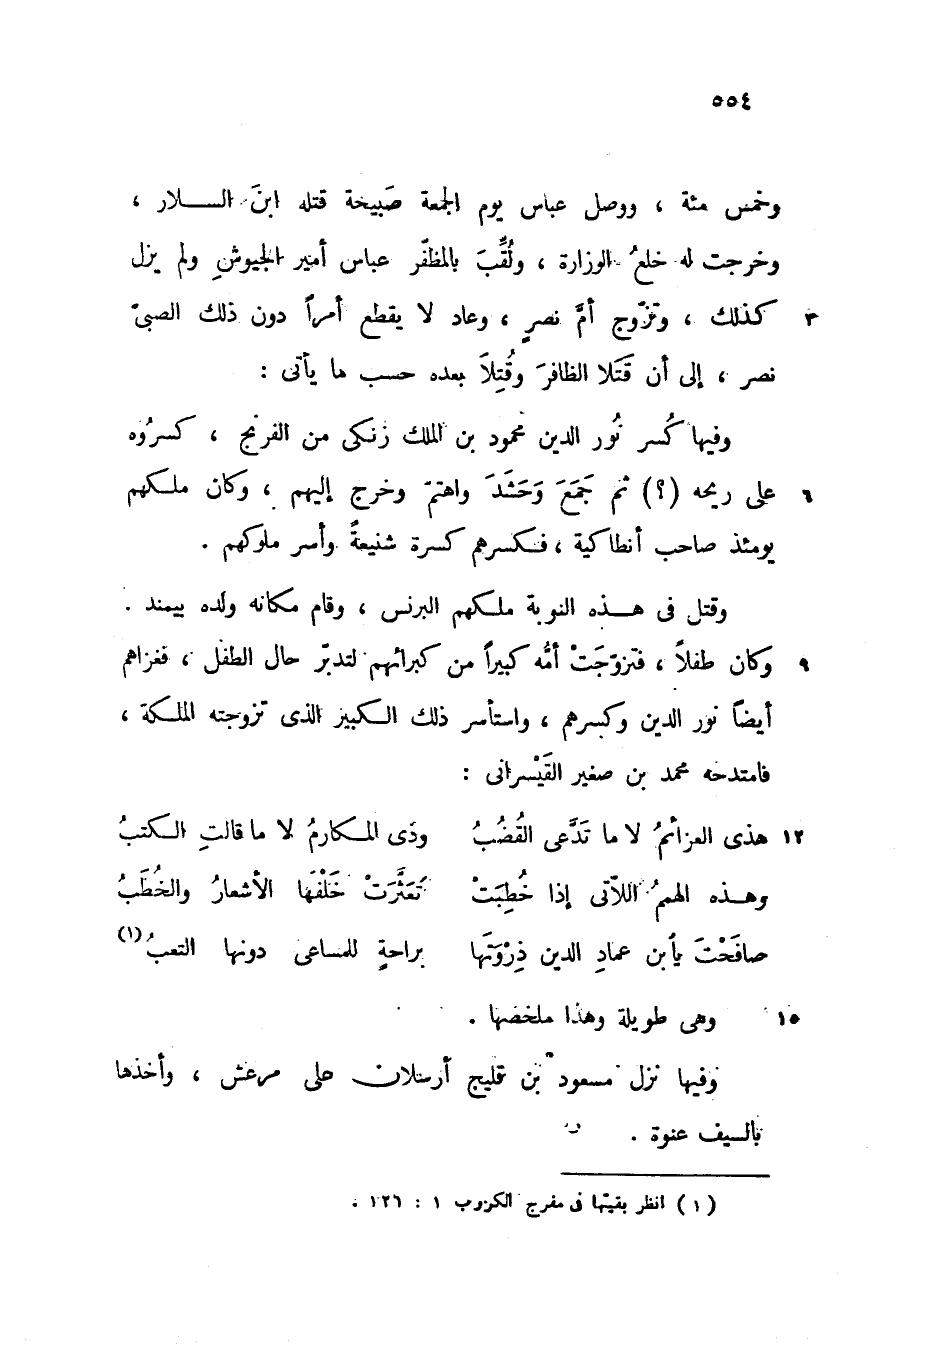 ٥٥٤
وخمس مئة ، ووصل عباس يوم الجمعة صَبيحة قتله ابنَ الســلار ،
وخرجت له خلعُ الوزارة ، ولُقِّبَ بالمظفّر عباس أمير الجيوشِ ولم يزل
٣ كذلك ، وتزوّج أمَّ نصرٍ ، وعاد لا يقطع أمراً دون ذلك الصبىّ
نصر ، إلى أن قَتَلا الظافرَ وقُتِلاَ بعده حسب ما يأتى :
وفيها كُسر نُور الدين محمود بن الملك زنكى من الفرنج ، كسرُوه
٦ على ريحه (؟) ثم جَمَعَ وَحَشَدَ واهتمّ وخرج إليهم ، وكان ملكهم
يومئذ صاحب أنطاكية ، فكسرهم كسرة شنيعةً وأسر ملوكهم .
وقتل فى هــذه النوبة ملكهم البرنس ، وقام مكانه ولده بيمند .
٩ وكان طفلاً ، فتزوّجَتْ أمُّه كبيراً من كبرائهم لتدبّر حال الطفل ، فغزاهم
أيضاً نور الدين وكسرهم ، واستأسر ذلك الكبير الذى تزوجته الملكة ،
فامتدحه محمد بن صغير القَيْسرانى :
١٢ هذى العزائمُ لا ما تَدَّعى القُضُبُ وذى المكارمُ لا ما قالتِ الكتبُ
وهــذه الهممُ اللاّتى إذا خُطِبَتْ تَعَثَّرَتْ خَلْفَها الأشعارُ والخُطَبُ
صافَحْتَ يأبن عمادِ الدين ذِرْوَتَها براحةٍ للمساعى دونها التعبُ(١)
١٥ وهى طويلة وهذا ملخصها .
وفيها نزل مسعود بن قليج أرسلان على مرعش ، وأخذها
بالسيف عنوة .
(١) انظر بقيتها فى مفرج الكروب ١ : ١٢٦ .